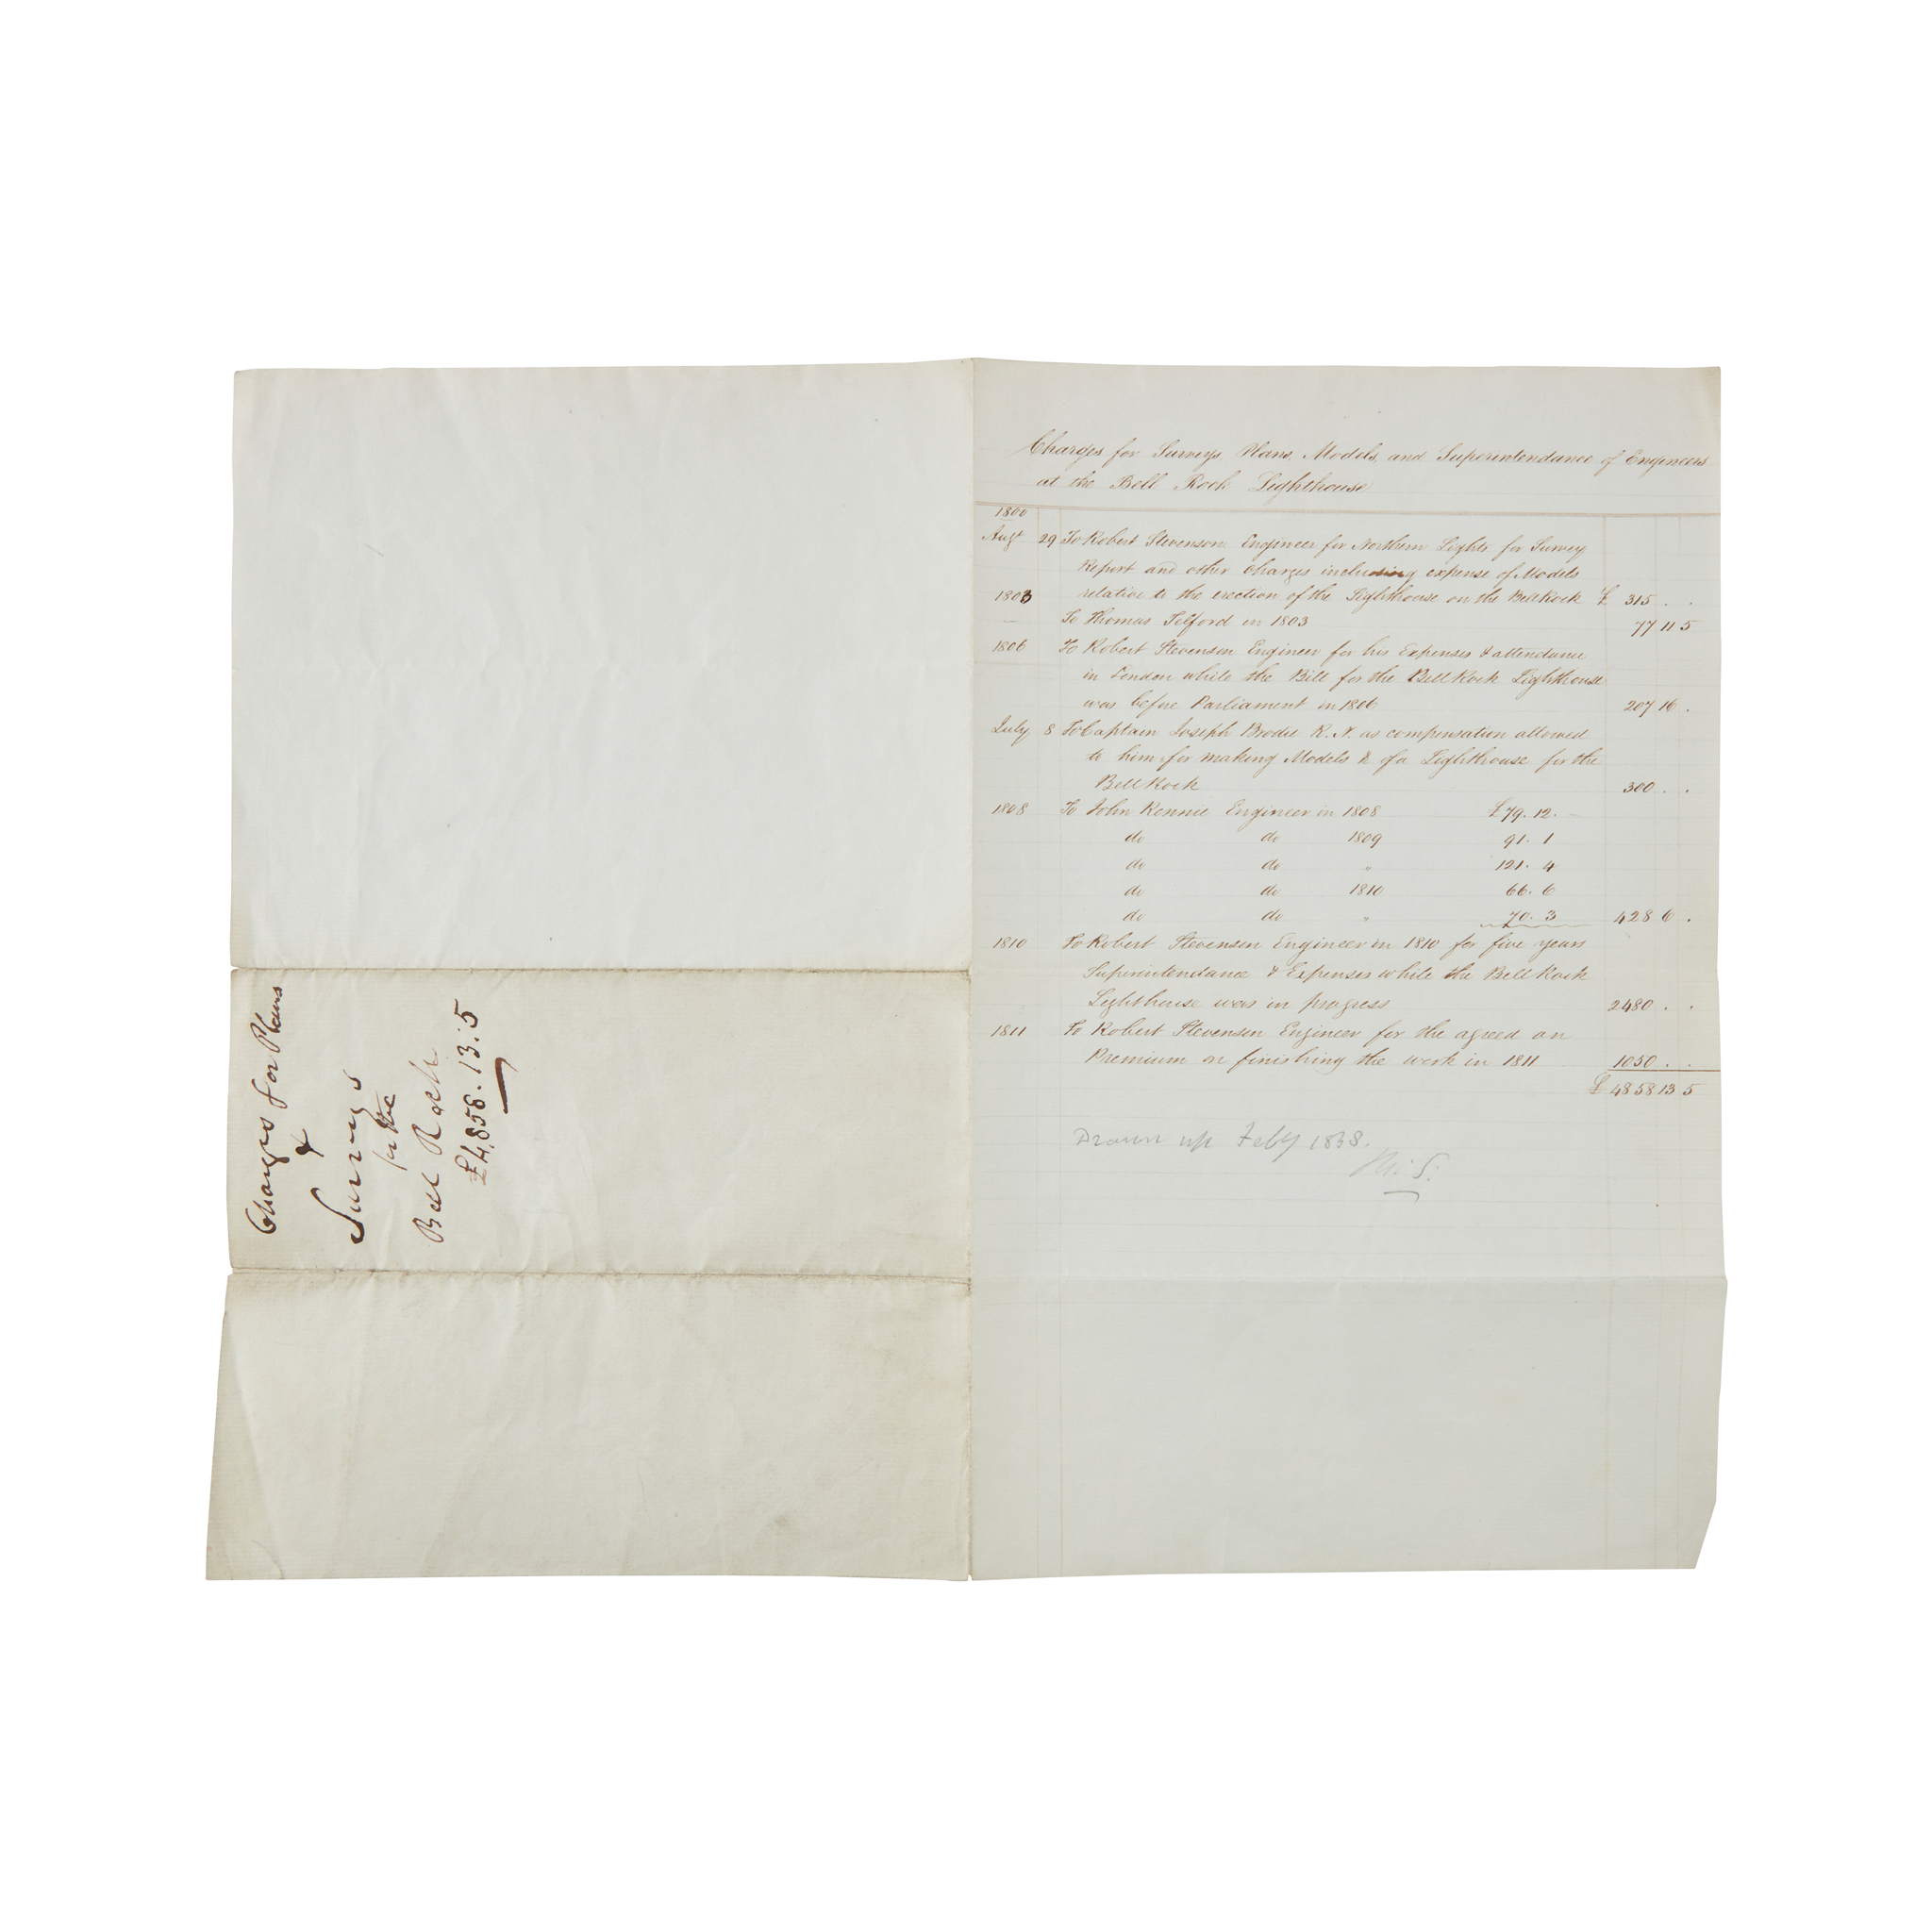 Charges for Surveys, Plans, Models, and Superintendance of Engineers
at the Bell Rock Lighthouse
1800
Augt 29 To Robert Stevenson Engineer for Northern Lights for Survey
Report and other Charges including expense of Models
1803 relative to the erection of the Lighthouse on the Bell Rock £ 315 . .
To Thomas Telford in 1803 77 11 5
1806 To Robert Stevenson Engineer for his Expenses & attendance
in London while the Bill for the Bell Rock Lighthouse
was before Parliament in 1806 207 16 .
July 8 To Captain Joseph Brodie R. N. as compensation allowed
to him for making Models & of a Lighthouse for the
Bell Rock 300 . .
1808 To John Rennie Engineer in 1808 £79. 12. –
do do 1809 91. 1
do do " 121. 4
do do 1810 66. 6
do do " 70. 3 428 6 .
1810 To Robert Stevenson Engineer in 1810 for five years
Superintendance & Expenses while the Bell Rock
Lighthouse was in progress 2480 . .
1811 To Robert Stevenson Engineer for the agreed on
Premium on finishing the work in 1811 1050 . .
£ 4858 13 5
Drawn up Feby 1838.
Charges for Plans
&
Surveys
for the
Bell Rock
£4,858.13.5